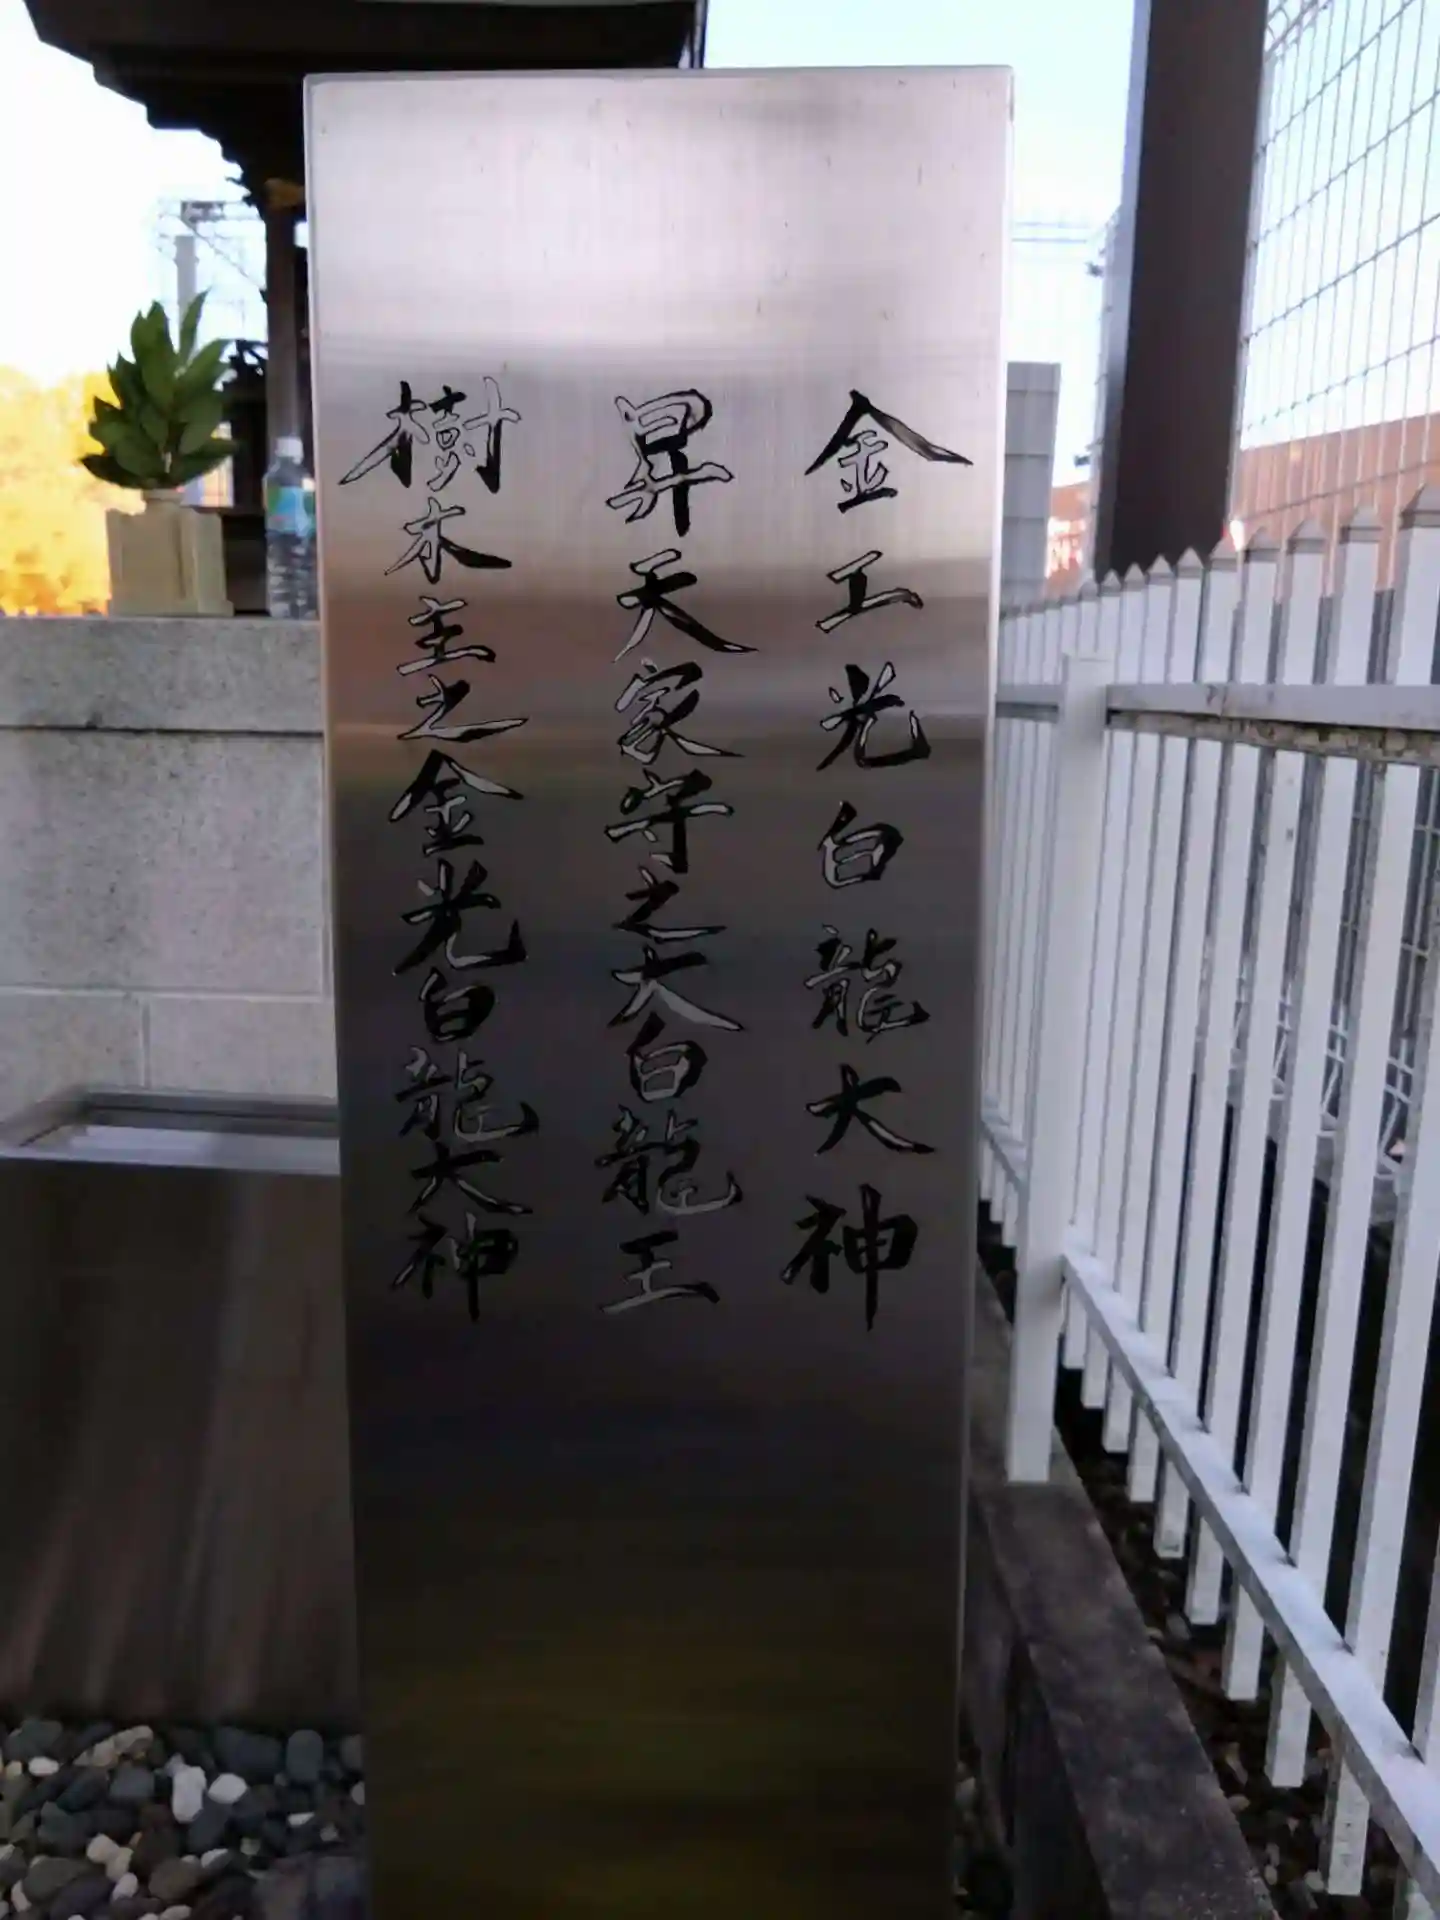 金工光白龍大神
昇天家守之大白龍王
樹木主之金光白龍大神